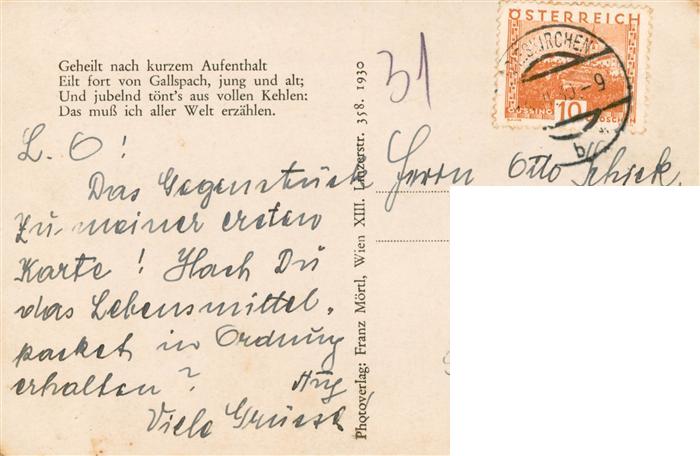 Geheilt nach kurzem Aufenthalt
Eilt fort von Gallspach, jung und alt;
Und jubelnd tönt's aus vollen Kehlen:
Das muß ich aller Welt erzählen.
31
L. O!
Das Gegenstück
zu meiner ersten
Karte! Hast Du
das Lebensmittel-
packet in Ordnung
erhalten?
Viele Grüsse
Photoverlag: Franz Mörtl, Wien XIII. Linzerstr. 358. 1930
ÖSTERREICH
GÜSSING 10 GROSCHEN
SKIRCHEN
Herrn Otto